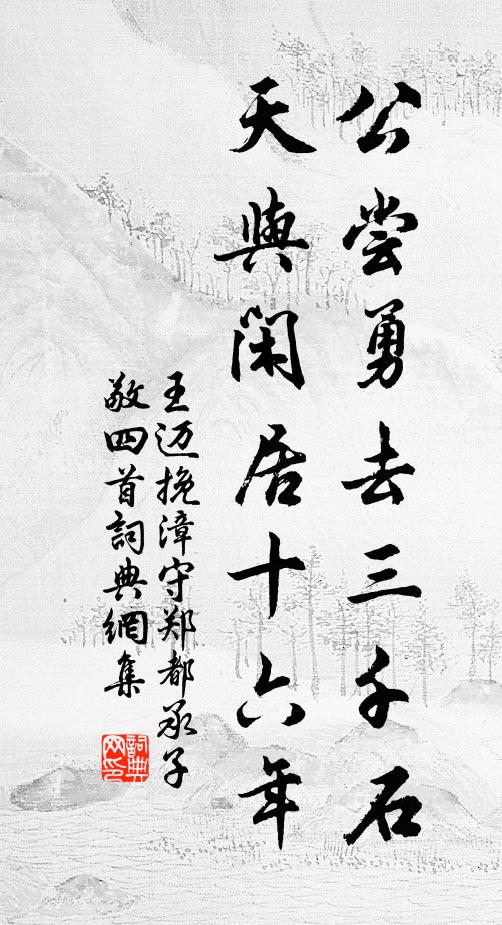 公尝勇去三千石
天与闲居十六年
王迈挽漳守郑都承子
敬四首詞典網集
詞典
网印